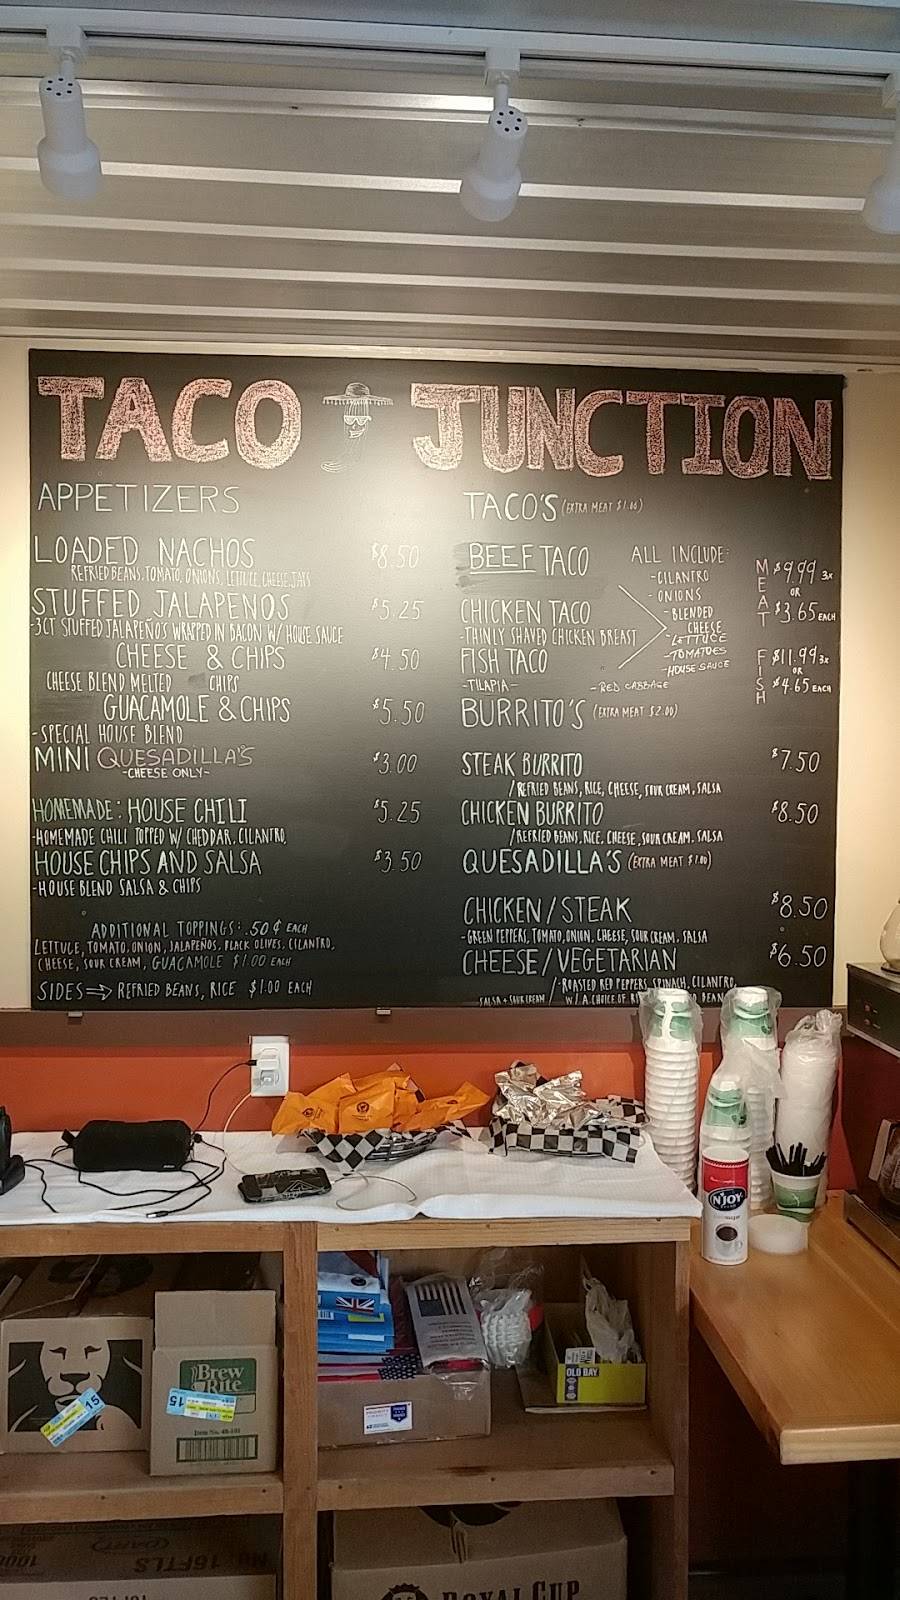 TACO JUNCTION
APPETIZERS
LOADED NACHOS $8.50
REFRIED BEANS, TOMATO, ONIONS, LETTUCE, CHEESE, JAPS
STUFFED JALAPENOS $5.25
-3CT STUFFED JALAPEÑO'S WRAPPED IN BACON W/ HOUSE SAUCE
CHEESE & CHIPS $4.50
CHEESE BLEND MELTED CHIPS
GUACAMOLE & CHIPS $5.50
-SPECIAL HOUSE BLEND
MINI QUESADILLA'S $3.00
-CHEESE ONLY-
HOMEMADE: HOUSE CHILI $5.25
-HOMEMADE CHILI TOPPED W/ CHEDDAR, CILANTRO,
HOUSE CHIPS AND SALSA $3.50
-HOUSE BLEND SALSA & CHIPS
ADDITIONAL TOPPINGS: .50¢ EACH
LETTUCE, TOMATO, ONION, JALAPEÑOS, BLACK OLIVES, CILANTRO,
CHEESE, SOUR CREAM, GUACAMOLE $1.00 EACH
SIDES⇒ REFRIED BEANS, RICE $1.00 EACH
TACO'S (EXTRA MEAT $1.00)
BEEF TACO
CHICKEN TACO
-THINLY SHAVED CHICKEN BREAST
FISH TACO
-TILAPIA- -RED CABBAGE
ALL INCLUDE:
-CILANTRO
-ONIONS
-BLENDED
CHEESE
-LETTUCE
-TOMATOES
-HOUSE SAUCE
MEAT
$9.99 3x
OR
$3.65 EACH
FISH
$11.99 3x
OR
$4.65 EACH
BURRITO'S (EXTRA MEAT $2.00)
STEAK BURRITO $7.50
/REFRIED BEANS, RICE, CHEESE, SOUR CREAM, SALSA
CHICKEN BURRITO $8.50
/REFRIED BEANS, RICE, CHEESE, SOUR CREAM, SALSA
QUESADILLA'S (EXTRA MEAT $1.00)
CHICKEN/STEAK $8.50
-GREEN PEPPERS, TOMATO, ONION, CHEESE, SOUR CREAM, SALSA
CHEESE/VEGETARIAN $6.50
/-ROASTED RED PEPPERS, SPINACH, CILANTRO,
SALSA + SOUR CREAM W/ A CHOICE OF
N'JOY
Brew Rite
Item No.
15
15
OLD BAY
16FTLS
ROYAL CUP